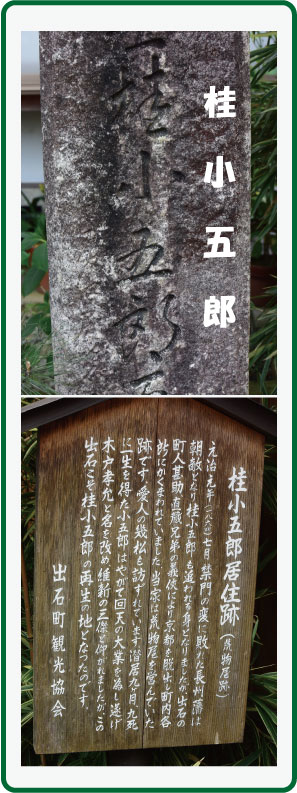 桂小五郎
桂小五郎
桂小五郎居住跡(荒物屋跡)
元治元年(一八六四)七月 禁門の変に敗れた長州藩は
朝敵となり桂小五郎も追われる身となりましたが、出石の
町人甚助直蔵兄弟の義侠により京都を脱出し町内各
所にかくまわれていました。当家は荒物屋を営んでいた
跡です。愛人の幾松も訪ずれています。潜居九ヶ月、九死
に一生を得た小五郎はやがて回天の大業を為し遂げ
木戸孝允と名を改め維新の三傑と仰がれましたが、この
出石こそ桂小五郎の再生の地となったのです。
出石町観光協会